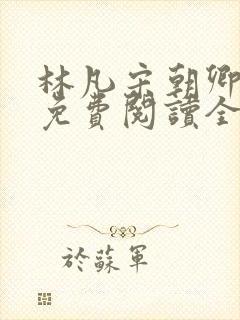 林凡宋朝卿
免費閱讀全
於蘇軍